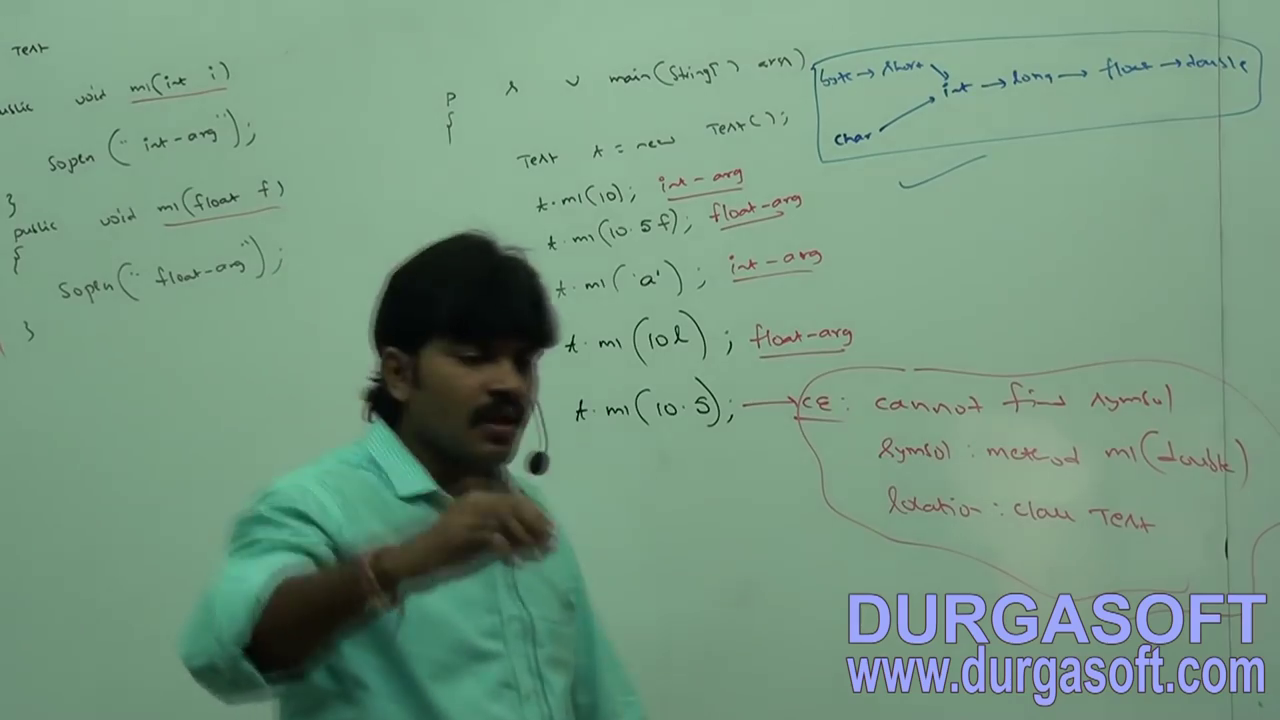 Test
public void m1(int i)
Sopln("int-arg");
}
public void m1(float f)
{
Sopln("float-arg");
}
P s v main(String[] args)
{
Test t = new Test();
t.m1(10); int-arg
t.m1(10.5f); float-arg
t.m1('a'); int-arg
t.m1(10l); float-arg
t.m1(10.5); CE: cannot find symbol
symbol: method m1(double)
location: class Test
byte → short → int → long → float → double
char
DURGASOFT
www.durgasoft.com